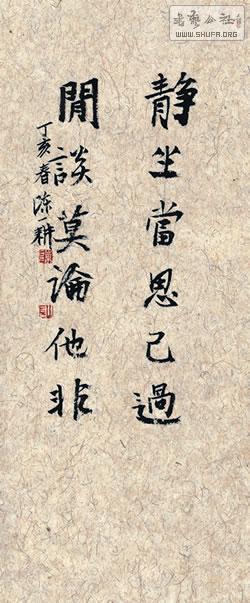 静坐當思己過
閒談莫論他非
丁亥春 陈一耕
书艺公社
WWW.SHUFA.ORG